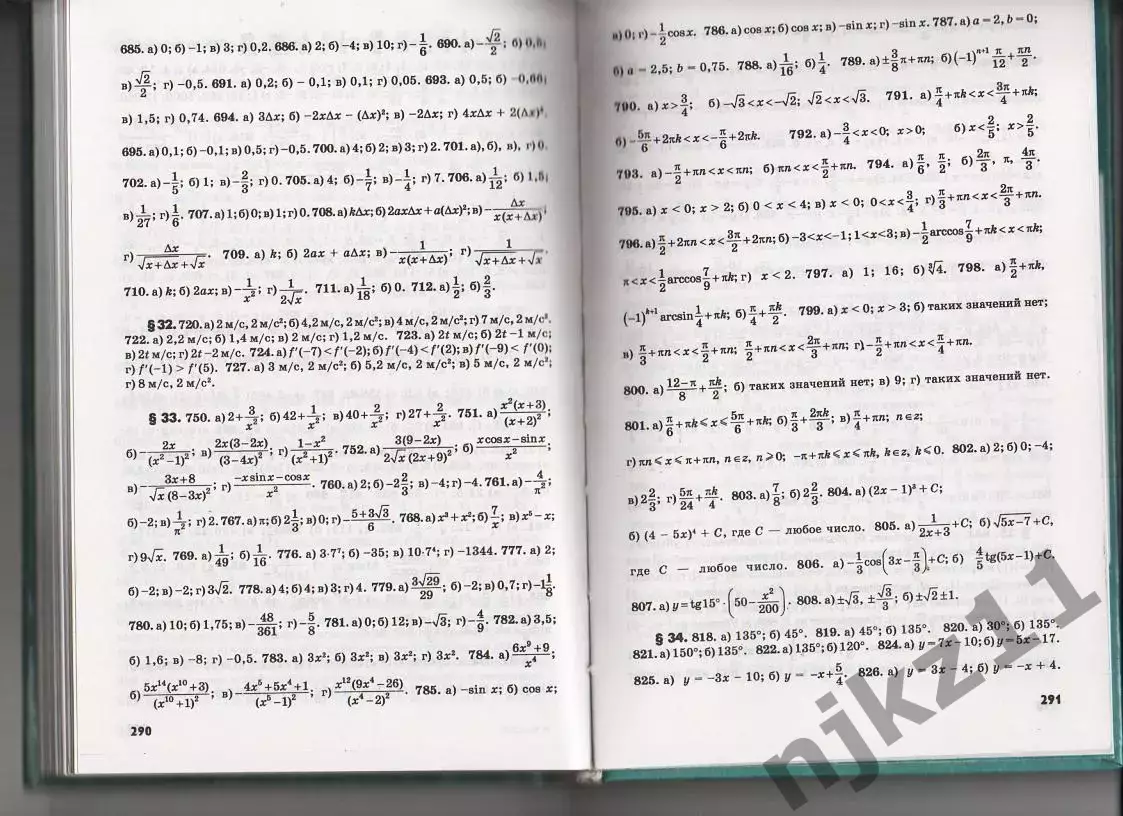 685. а) 0; б) -1; в) 3; г) 0,2. 686. а) 2; б) -4; в) 10; г) -1/6. 690. а) -√2/2; б) 0,5;
в) √2/2; г) -0,5. 691. а) 0,2; б) - 0,1; в) 0,1; г) 0,05. 693. а) 0,5; б)
в) 1,5; г) 0,74. 694. а) 3Δx; б) -2xΔx - (Δx)²; в) -2Δx; г) 4xΔx +
695. а) 0,1; б) -0,1; в) 0,5; г) -0,5. 700. а) 4; б) 2; в) 3; г) 2. 701. а), б), в), г) 0.
702. а) -1/5; б) 1; в) -2/3; г) 0. 705. а) 4; б) -1/7; в) -1/4; г) 7. 706. а) 1/12; б)
в) 1/27; г) 1/6. 707. а) 1; б) 0; в) 1; г) 0. 708. а) kΔx; б) 2axΔx + a(Δx)²; в) -Δx/(x(x+Δx));
г) Δx/(√(x+Δx)+√x). 709. а) k; б) 2ax + aΔx; в) -1/(x(x+Δx)); г) 1/(√(x+Δx)+√x).
710. а) k; б) 2ax; в) -1/x²; г) 1/(2√x). 711. а) 1/18; б) 0. 712. а) 1/2; б) 2/3.
§ 32. 720. а) 2 м/с, 2 м/с²; б) 4,2 м/с, 2 м/с²; в) 4 м/с, 2 м/с²; г) 7 м/с, 2 м/с².
722. а) 2,2 м/с; б) 1,4 м/с; в) 2 м/с; г) 1,2 м/с. 723. а) 2t м/с; б) 2t -1 м/с;
в) 2t м/с; г) 2t -2 м/с. 724. а) f'(-7) < f'(-2); б) f'(-4) < f'(2); в) f'(-9) < f'(0);
г) f'(-1) > f'(5). 727. а) 3 м/с, 2 м/с²; б) 5,2 м/с, 2 м/с²; в) 5 м/с, 2 м/с²;
г) 8 м/с, 2 м/с².
§ 33. 750. а) 2+3/x²; б) 42+1/x²; в) 40+2/x²; г) 27+2/x². 751. а) x²(x+3)/(x+2)²;
б) -2x/(x²-1)²; в) 2x(3-2x)/(3-4x)²; г) (1-x²)/(x²+1)². 752. а) 3(9-2x)/(2√x(2x+9)²); б) (xcosx-sinx)/x²;
в) (3x+8)/(√x(8-3x)²); г) (-xsinx-cosx)/x². 760. а) 2; б) -2 2/3; в) -4; г) -4. 761. а) -4/π²;
б) -2; в) 4/π²; г) 2. 767. а) π; б) 2 1/3; в) 0; г) -(5+3√3)/6. 768. а) x³+x²; б) 7/x; в) x⁵-x;
г) 9√x. 769. а) 1/49; б) 1/16. 776. а) 3·7⁷; б) -35; в) 10·7⁴; г) -1344. 777. а) 2;
б) -2; в) -2; г) 3√2. 778. а) 4; б) 4; в) 3; г) 4. 779. а) 3√29/29; б) -2; в) 0,7; г) -1 1/8.
780. а) 10; б) 1,75; в) -48/361; г) -5/8. 781. а) 0; б) 12; в) -√3; г) -4/9. 782. а) 3,5;
б) 1,6; в) -8; г) -0,5. 783. а) 3x²; б) 3x²; в) 3x²; г) 3x². 784. а) (6x⁹+9)/x⁴;
б) 5x¹⁴(x¹⁰+3)/(x¹⁰+1)²; в) -(4x⁵+5x⁴+1)/(x⁵-1)²; г) x¹²(9x⁴-26)/(x⁴-2)². 785. а) -sin x; б) cos x;
290
в) 0; г) -1/2 cosx. 786. а) cos x; б) cos x; в) -sin x; г) -sin x. 787. а) a = 2, b = 0;
б) a = 2,5; b = 0,75. 788. а) 1/16; б) 1/4. 789. а) ±3/8π+πn; б) (-1)ⁿ⁺¹ π/12+πn/2.
790. а) x>3/4; б) -√3<x<-√2; √2<x<√3. 791. а) π/4+πk<x<3π/4+πk;
б) -5π/6+2πk<x<-π/6+2πk. 792. а) -3/4<x<0; x>0; б) x<2/5; x>2/5.
793. а) -π/2+πn<x<πn; б) πn<x<π/2+πn. 794. а) π/6, π/2; б) 2π/3, π, 4π/3.
795. а) x < 0; x > 2; б) 0 < x < 4; в) x < 0; 0<x<3/4; г) π/3+πn<x<2π/3+πn.
796. а) π/2+2πn<x<3π/2+2πn; б) -3<x<-1; 1<x<3; в) -1/2arccos7/9+πk<x<πk;
πk<x<1/2arccos7/9+πk; г) x < 2. 797. а) 1; 16; б) ∛4. 798. а) π/2+πk,
(-1)ᵏ⁺¹ arcsin1/4+πk; б) π/4+πk/2. 799. а) x < 0; x > 3; б) таких значений нет;
в) π/3+πn<x<π/2+πn; π/2+πn<x<2π/3+πn; г) -π/2+πn<x<π/4+πn.
800. а) (12-π)/8+πk/2; б) таких значений нет; в) 9; г) таких значений нет.
801. а) π/6+πk⩽x⩽5π/6+πk; б) π/3+2πk/3; в) π/4+πn; n∈z;
г) πn⩽x⩽π+πn, n∈z, n⩾0; -π+πk⩽x⩽πk, k∈z, k⩽0. 802. а) 2; б) 0; -4;
в) 2 2/3; г) 5π/24+πk/4. 803. а) 7/8; б) 2 2/3. 804. а) (2x - 1)³ + C;
б) (4 - 5x)⁴ + C, где C — любое число. 805. а) 1/(2x+3)+C; б) √(5x-7)+C,
где C — любое число. 806. а) -1/3cos(3x-π/3)+C; б) 4/5tg(5x-1)+C.
807. а) y=tg15°·(50-x²/200). 808. а) ±√3, ±√3/3; б) ±√2±1.
§ 34. 818. а) 135°; б) 45°. 819. а) 45°; б) 135°. 820. а) 30°; б) 135°.
821. а) 150°; б) 135°. 822. а) 135°; б) 120°. 824. а) y=7x-10; б) y=5x-17.
825. а) y = -3x - 10; б) y = -x+5/4. 826. а) y = 3x - 4; б) y = -x + 4.
291
njkz11